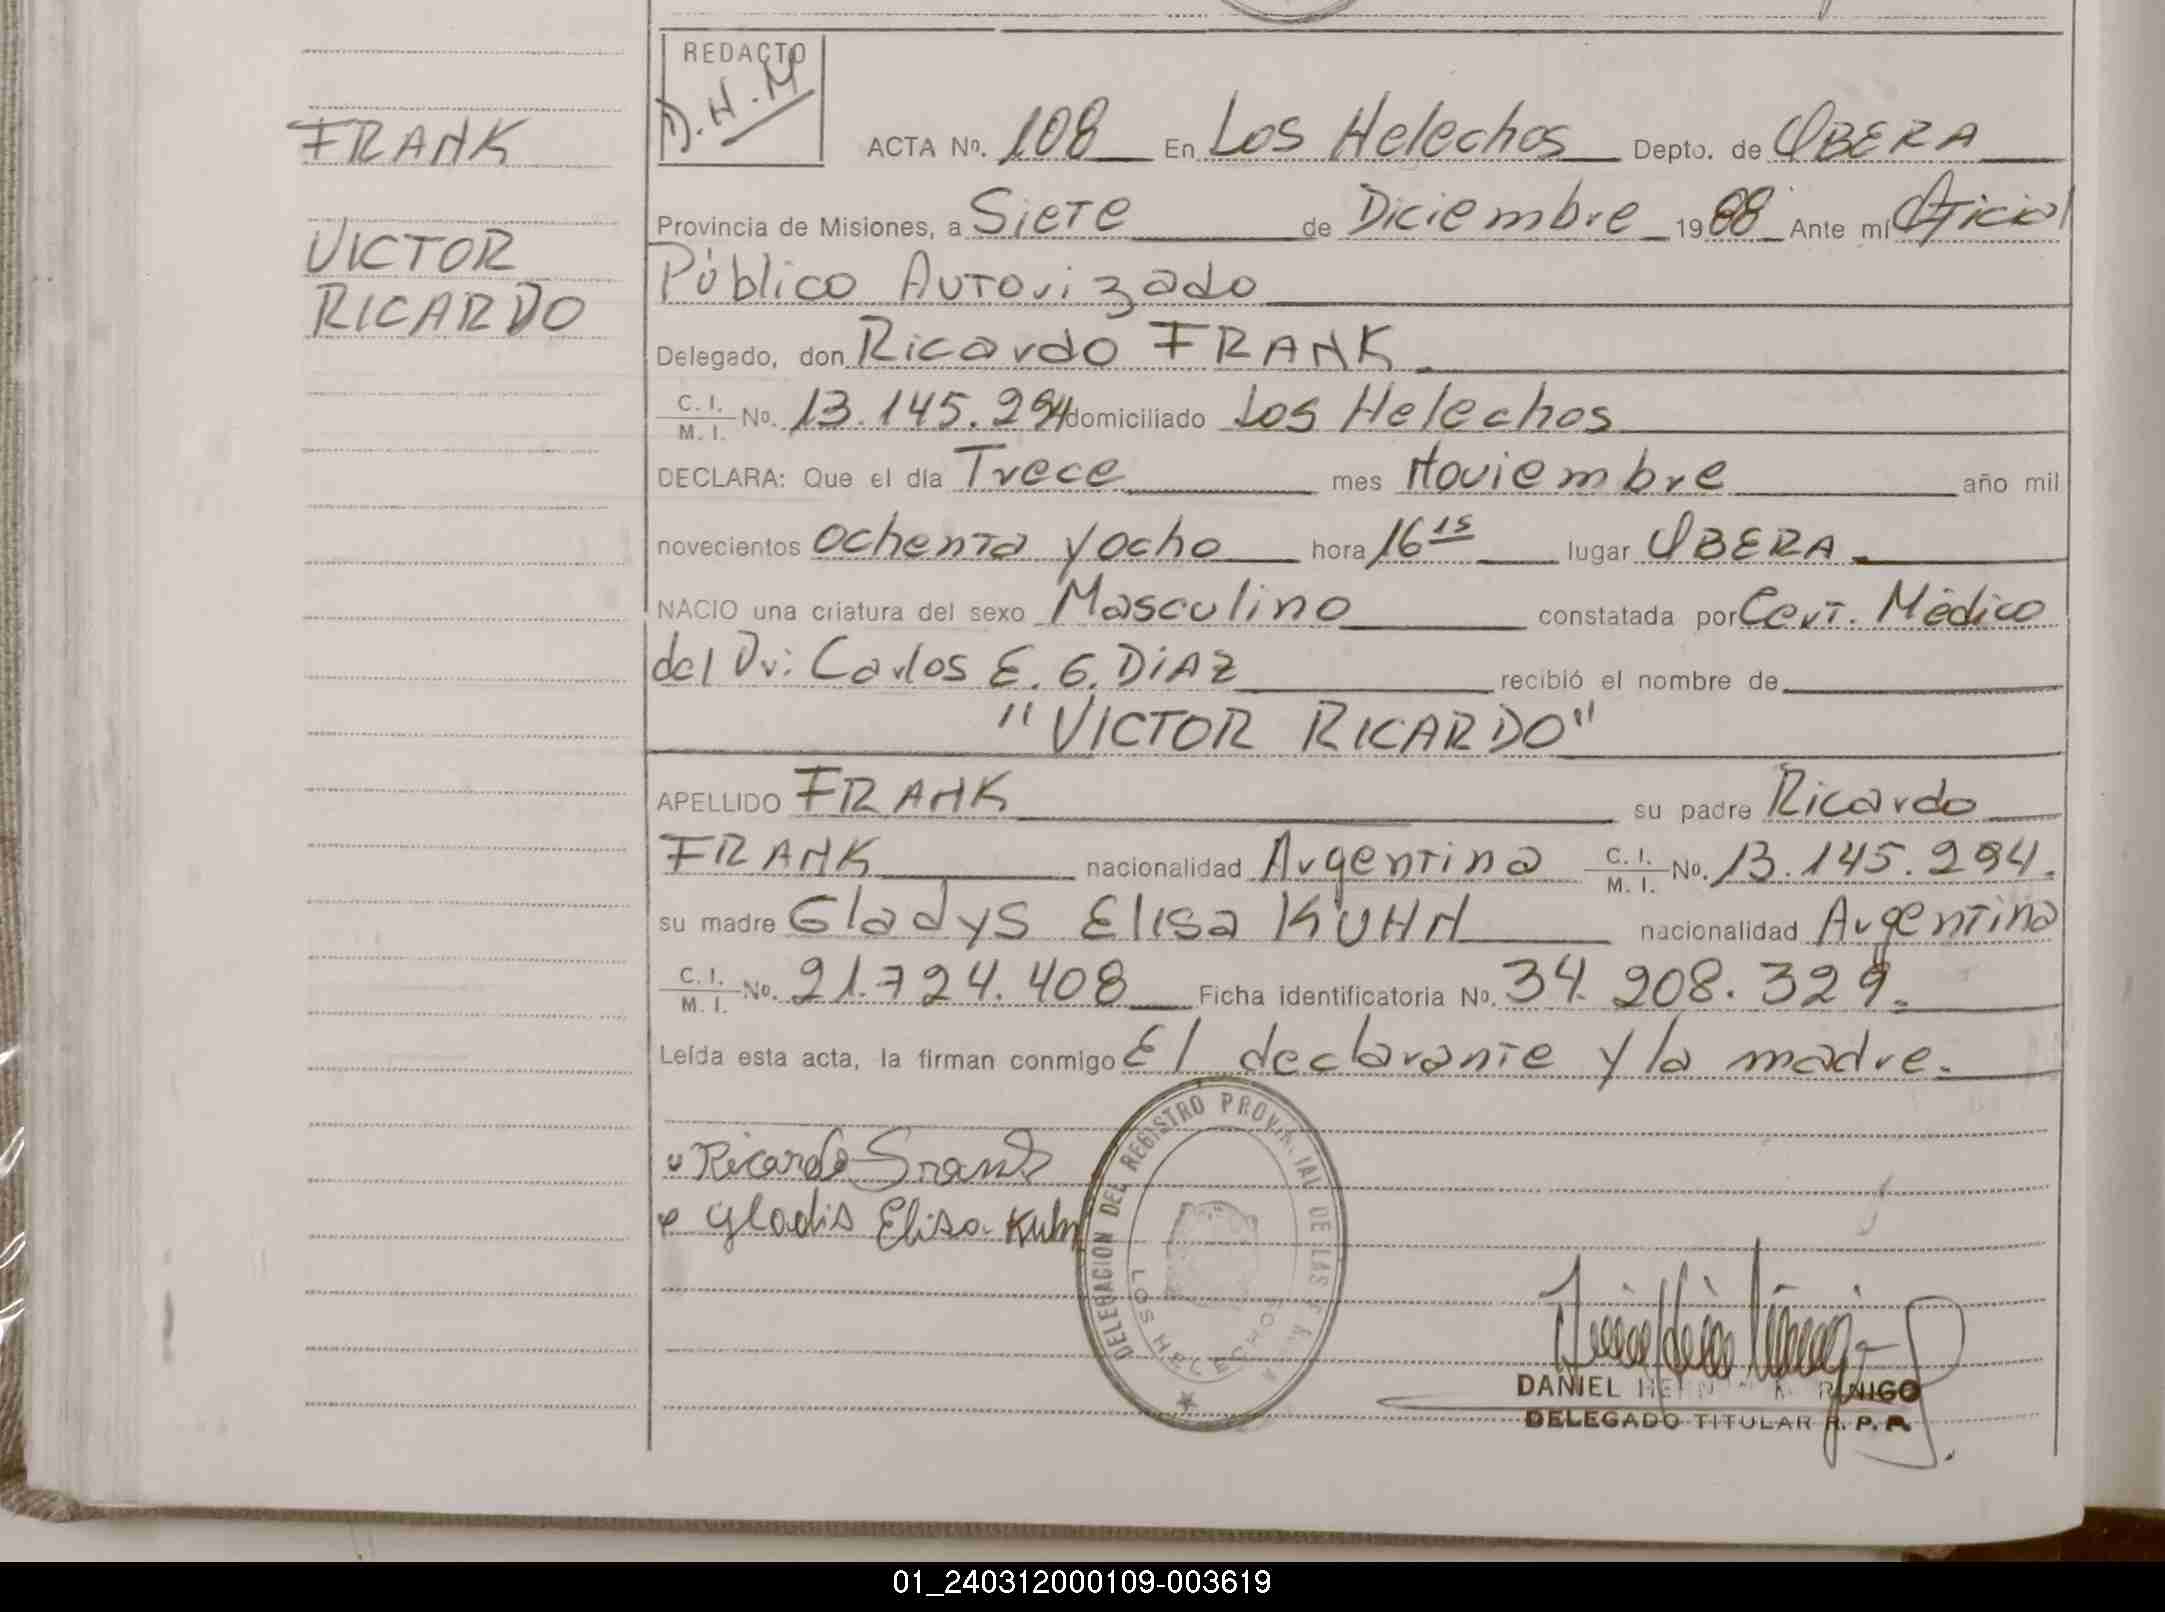 REDACTO
D.H.M
FRANK
ACTA Nº. 108 En Los Helechos Depto. de OBERA
VICTOR
Provincia de Misiones, a Siete de Diciembre 1988 Ante mí Oficial
RICARDO
Público Autorizado
Delegado, don Ricardo FRANK
C. I. / M. I. Nº. 13.145.294 domiciliado Los Helechos
DECLARA: Que el día Trece mes Noviembre año mil
novecientos ochenta y ocho hora 16 15 lugar OBERA
NACIO una criatura del sexo Masculino constatada por Cert. Médico
del Dr: Carlos E. G. DIAZ recibió el nombre de
"VICTOR RICARDO"
APELLIDO FRANK su padre Ricardo
FRANK nacionalidad Argentina C. I. / M. I. Nº. 13.145.294.
su madre Gladys Elisa KUHN nacionalidad Argentina
C. I. / M. I. Nº. 21.724.408 Ficha identificatoria Nº. 34.208.329.
Leída esta acta, la firman conmigo El declarante y la madre.
Ricardo Frank
Gladis Elisa Kuhn
DELEGACION DEL REGISTRO PROVINCIAL DE LAS
LOS HELECHOS
DANIEL
DELEGADO TITULAR R. P. P.
01_240312000109-003619